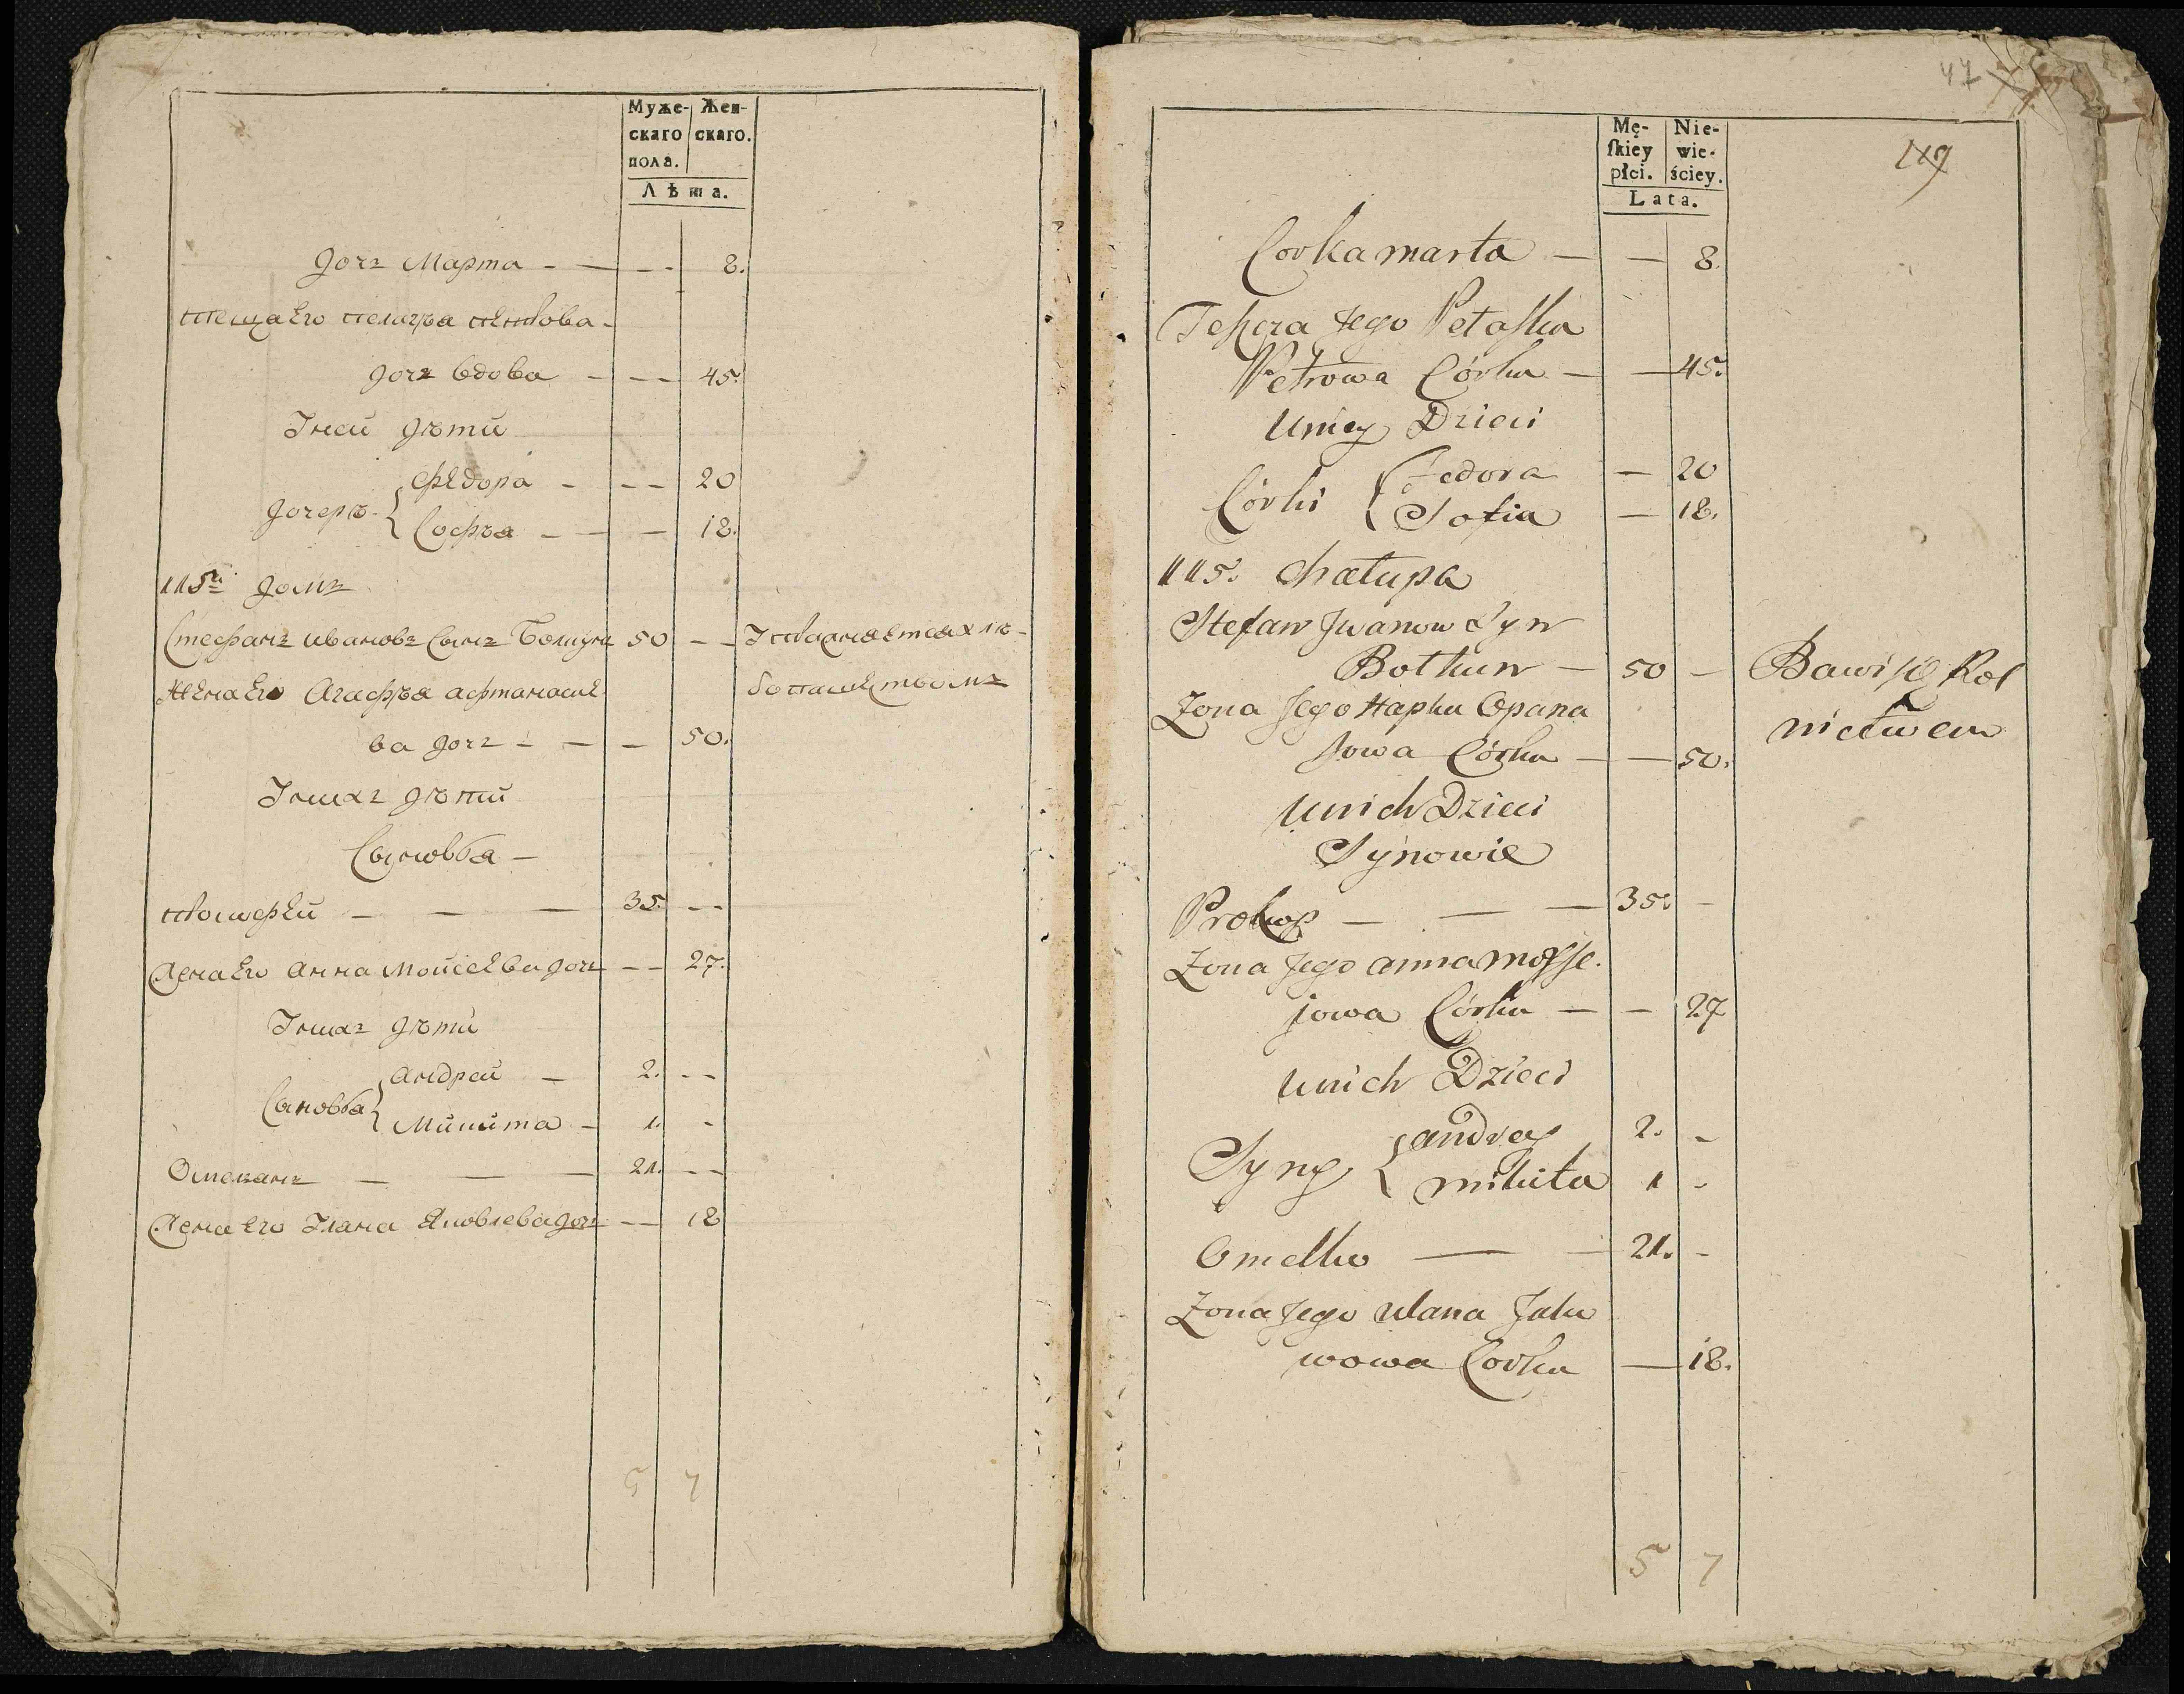 Муже- Жен-
скаго скаго.
пола.
Лѣта.
дочь Марта - — - - 8.
теща Его пелагѣа петрова -
дочь вдова - - — 45.
Унеи дѣти
Дочерѣ { Федора - - — 20
Софѣа - — — 18.
115й домъ
Стефанъ ивановъ Сынъ Болтунъ 50 - — Упражняется хлѣ-
Жена Его Агафѣа афтанасие бопашеством
ва дочь - — — 50.
Унихъ дѣти
Сыновья -
— — — 35. - -
Жена Его Анна Моисеева дочь - — 27.
Унихъ дѣти
Сыновья { Андреи - 2. - -
Микита - 1. -
Омелянъ — — — 21. - -
Жена Его Уляна Яковлева дочь - — 18
5 7
47
119
Mę- Nie-
ſkiey wie-
płci. ściey.
Lata.
Corka marta — — 8.
Teſzcza Jego Petaſka
Petrowa Córka — — 45.
Uniey Dzieci
Córki { Fedora — 20
Sofia — 18.
115. chałupa
Stefan Jwanow Syn
Bołtun — 50 — Bawi ſię Rol
Zona Jego Hapka Opana nictwem
ſowa Córka — — 50.
Unich Dzieci
Synowie
Prokop — — — 35. -
Zona Jego anna moyſe.
jowa Córka — — 27
Unich Dzieci
Syny { andrey 2. -
mikita 1 -
Omelko — — 21. -
Zona Jego ulana Jaku
wowa Corka — 18.
5 7